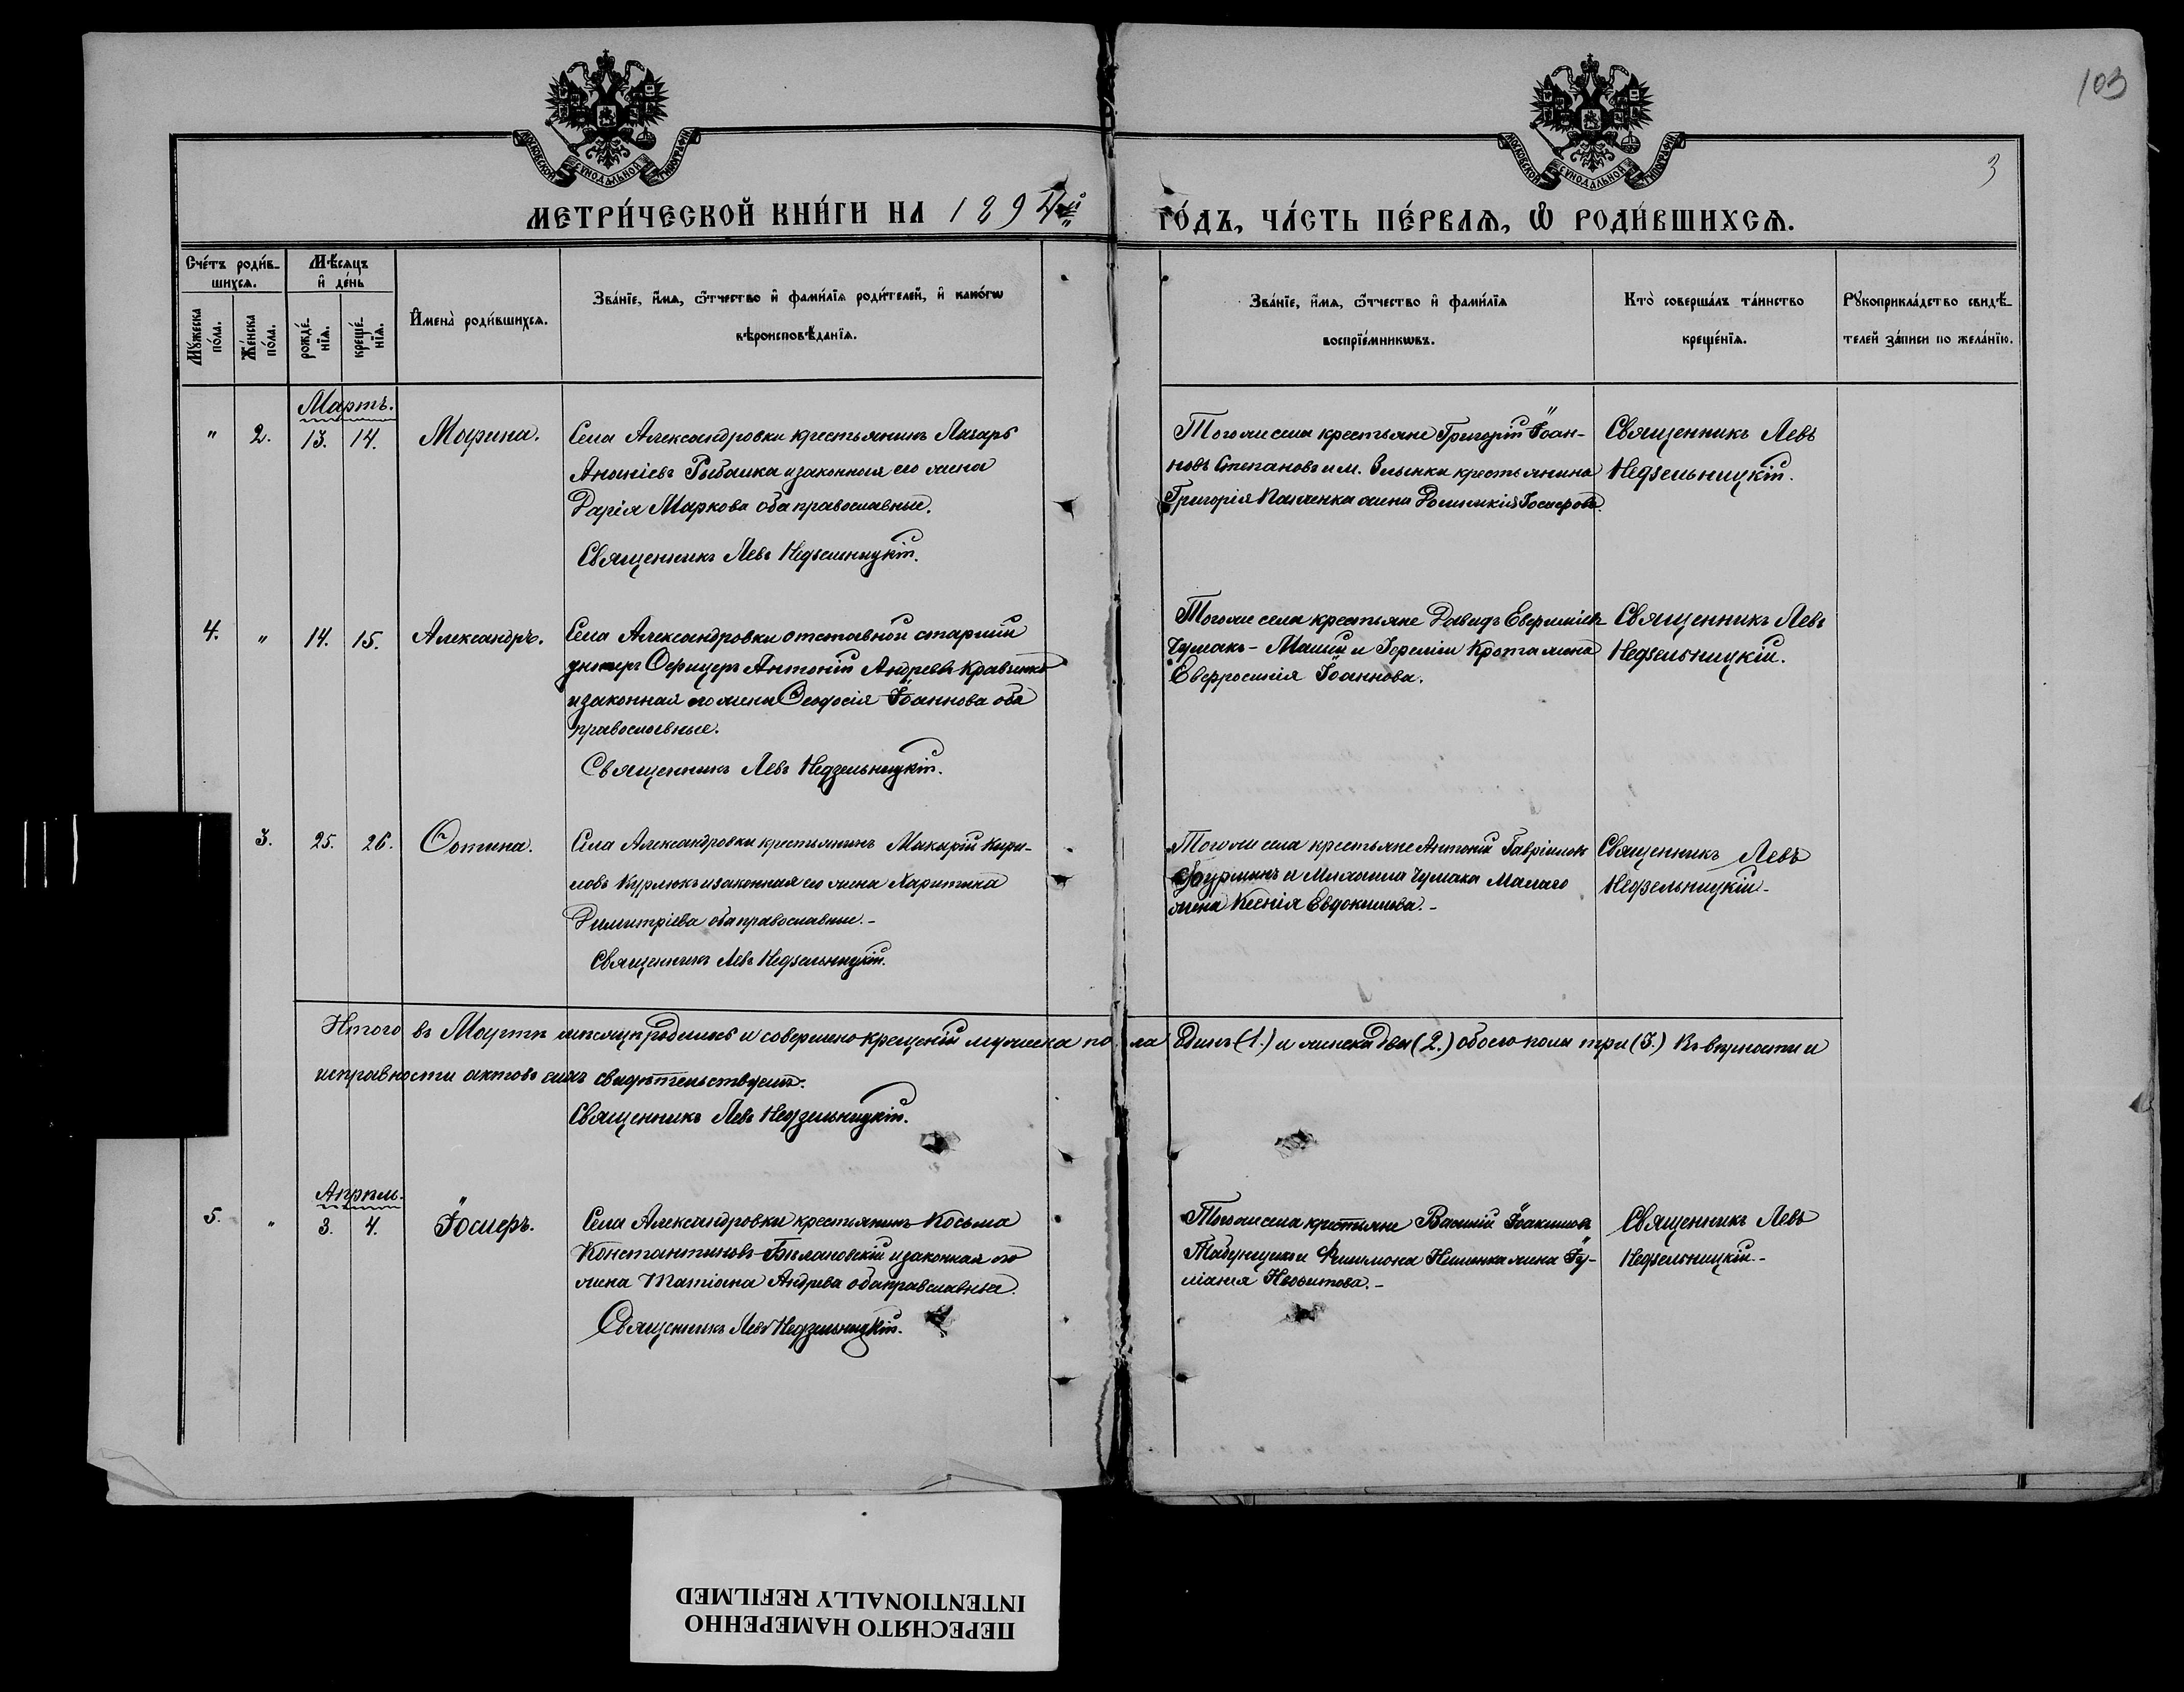 103
3
МОСКОВСКОЙ СУНОДАЛЬНОЙ ТИПОГРАФИИ
МОСКОВСКОЙ СУНОДАЛЬНОЙ ТИПОГРАФИИ
МЕТРИ́ЧЕСКОЙ КНИ́ГИ НА 1894й ГО́ДЪ, ЧА́СТЬ ПЕ́РВАѦ, Ѡ РОДИ́ВШИХСѦ.
Сче́тъ роди́в-
шихсѧ.
Мѣ́сѧцъ
и де́нь
Мꙋ́жеска по́ла.
Же́нска по́ла.
рожде́-нїѧ.
креще́-нїѧ.
Имена̀ роди́вшихсѧ.
Зва́нїе, и́мѧ, ѻ́тчество и фами́лїѧ роди́телей, и како́гѡ
вѣроисповѣ́данїѧ.
Зва́нїе, и́мѧ, ѻ́тчество и фами́лїѧ
воспрїе́мникѡвъ.
Кто̀ соверша́лъ та́инство
креще́нїѧ.
Рꙋкоприкла́дство свидѣ́-
телей за́писи по жела́нїю.
Мартъ.
" 2. 13. 14. Марина.
Села Александровки крестьянинъ Лазарь
Ананіевъ Рыбалка и законная его жена
Дарія Маркова оба православные.
Священникъ Левъ Недзельницкій.
Того же села крестьяне Григорій Іоан-
новъ Степановъ и м. крестьянина
Григорія жена Іосифова.
Священникъ Левъ
Недзельницкій.
4. " 14. 15. Александръ.
Села Александровки отставной старшій
унтеръ Офицеръ Антоній Андреевъ Кравченко
и законная его жена Ѳеодосія Іоаннова оба
православные.
Священникъ Левъ Недзельницкій.
Того же села крестьяне Давидъ
Чумакъ - Малый и Іереміи жена
Евфросинія Іоаннова.
Священникъ Левъ
Недзельницкій.
3. 25. 26. Ѳотина.
Села Александровки крестьянинъ Макарій Кири-
ловъ Курлюкъ и законная его жена Харитина
Димитріева оба православные. -
Священникъ Левъ Недзельницкій.
Того же села крестьяне Антоній Гавріиловъ
и Михаила Чумака Малаго
жена Ксенія Евдокимова. -
Священникъ Левъ
Недзельницкій -
Итого въ Мартѣ мѣсяцѣ родилось и совершено крещеній мужеска пола Одинъ (1.) и женска два (2.) обоего пола три (3.) Въ вѣрности и
исправности актовъ сихъ свидѣтельствуемъ.
Священникъ Левъ Недзельницкій.
Апрѣль.
5. " 3. 4. Іосифъ.
Села Александровки крестьянинъ Косьма
Константиновъ Билановскій и законная его
жена Татіана Андреева оба православные.
Священникъ Левъ Недзельницкій.
Того же села крестьяне Василій Іоакимовъ
и Филимона жена Іу-
ліанія Неофитова. -
Священникъ Левъ
Недзельницкій. -
ПЕРЕСНЯТО НАМЕРЕННО
INTENTIONALLY REFILMED